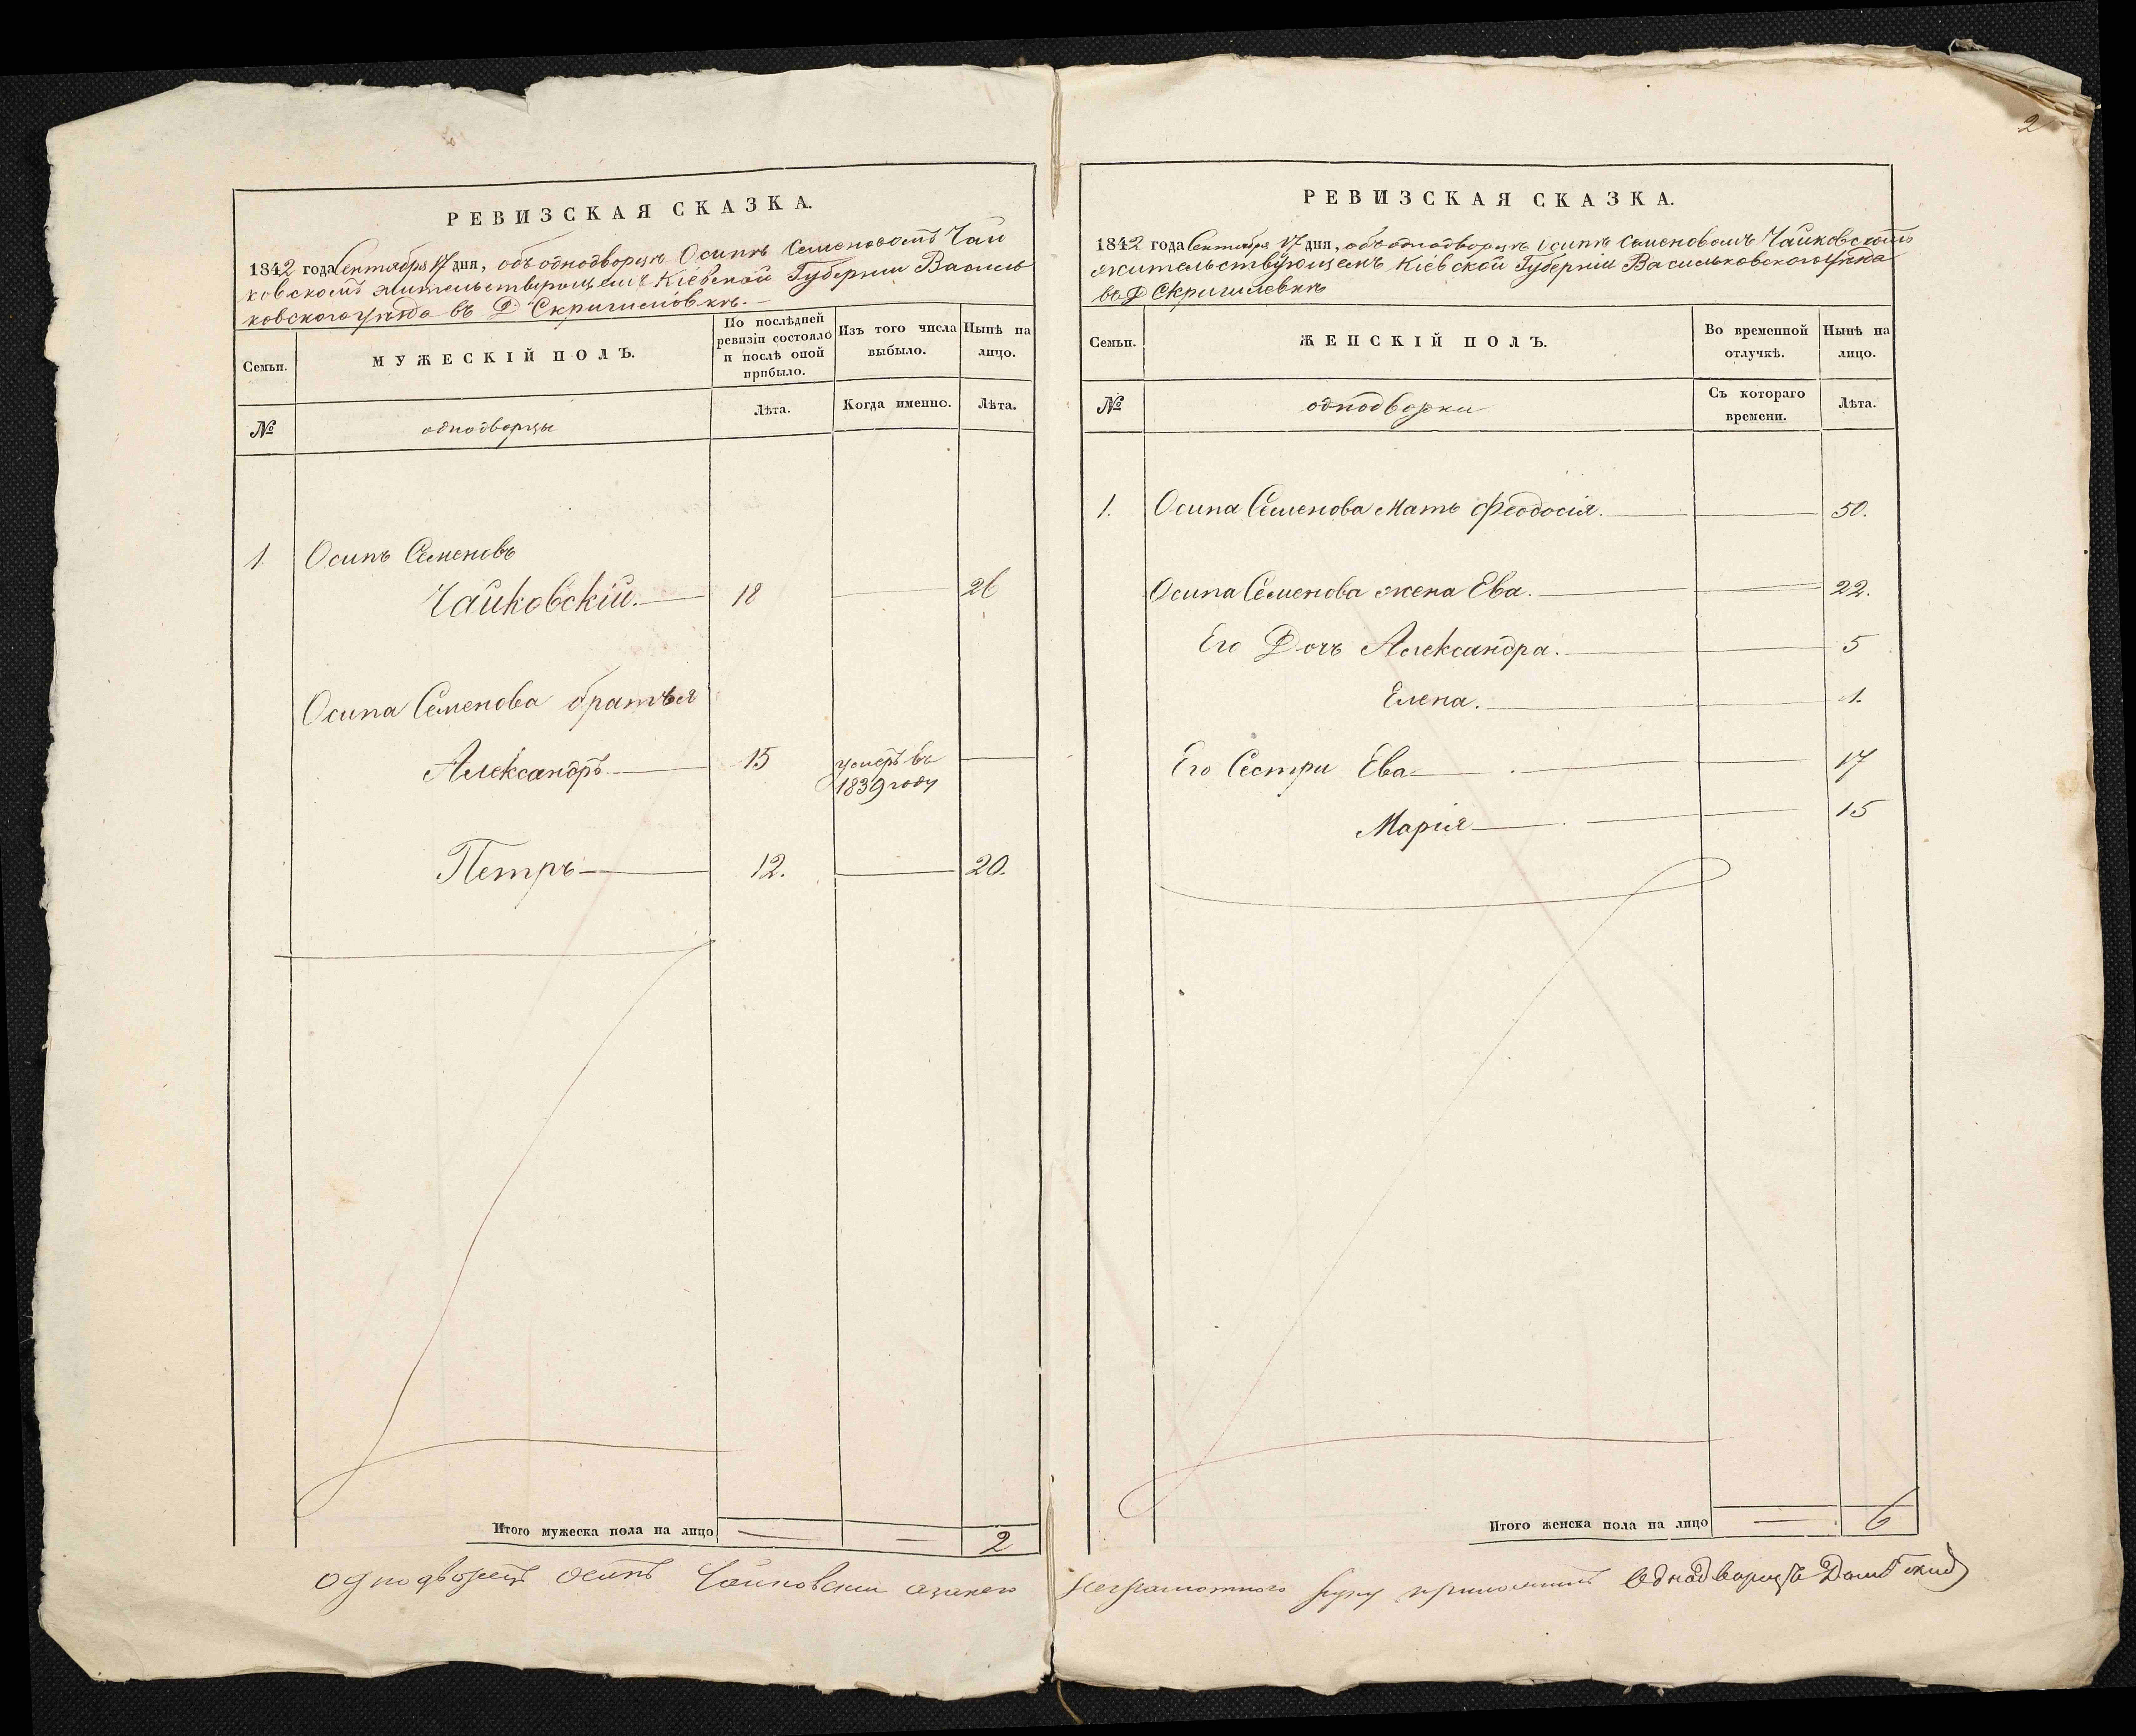 2
РЕВИЗСКАЯ СКАЗКА.
1842 года Сентября 17 дня, объ однодворцѣ Осипѣ Семеновомъ Чай
ковскомъ жительствующемъ Кіевской Губерніи Василь
ковского уѣзда въ Д Скригилевкѣ.
Семьи.
МУЖЕСКІЙ ПОЛЪ.
По послѣдней ревизіи состояло и послѣ оной прибыло.
Изъ того числа выбыло.
Нынѣ на лицо.
№
однодворцы
Лѣта.
Когда именно.
Лѣта.
1. Осипъ Семеновъ
Чайковскій. 18 26
Осипа Семенова братья
Александръ. 15 умеръ въ
1839 году
Петръ 12. 20.
Итого мужеска пола на лицо 2
однодворецъ Осипъ Чайковски азанего
РЕВИЗСКАЯ СКАЗКА.
1842 года Сентября 17 дня, объ однодворцѣ Осипѣ Семеновомъ Чайковскомъ
жительствующемъ Кіевской Губерніи Васильковского уѣзда
въ Д Скригилевкѣ
Семьи.
ЖЕНСКІЙ ПОЛЪ.
Во временной отлучкѣ.
Нынѣ на лицо.
№
однодворки
Съ котораго времени.
Лѣта.
1. Осипа Семенова мать Феодосія. 50.
Осипа Семенова жена Ева. 22.
Его Дочь Александра. 5
Елена. 1.
Его Сестри Ева 17
Марія 15
Итого женска пола на лицо 6
неграмотного руку приложилъ Однодворецъ